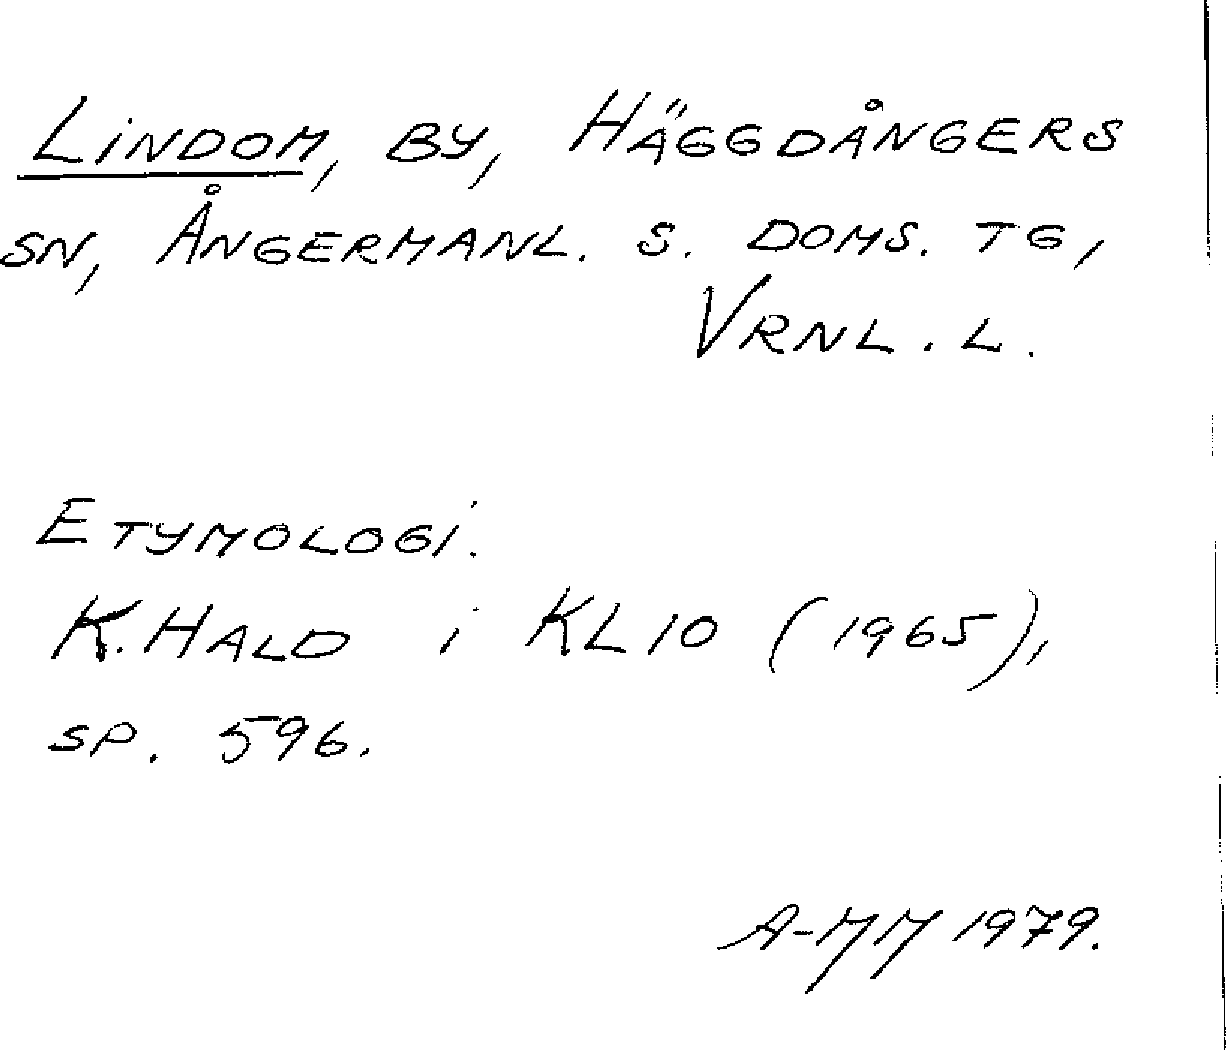 LINDOM, BY, HÄGGDÅNGERS
SN, ÅNGERMANL. S. DOMS. TG,
VRNL. L.
ETYMOLOGI.
K. HALD i KL 10 (1965),
SP. 596.
A-MM 1979.